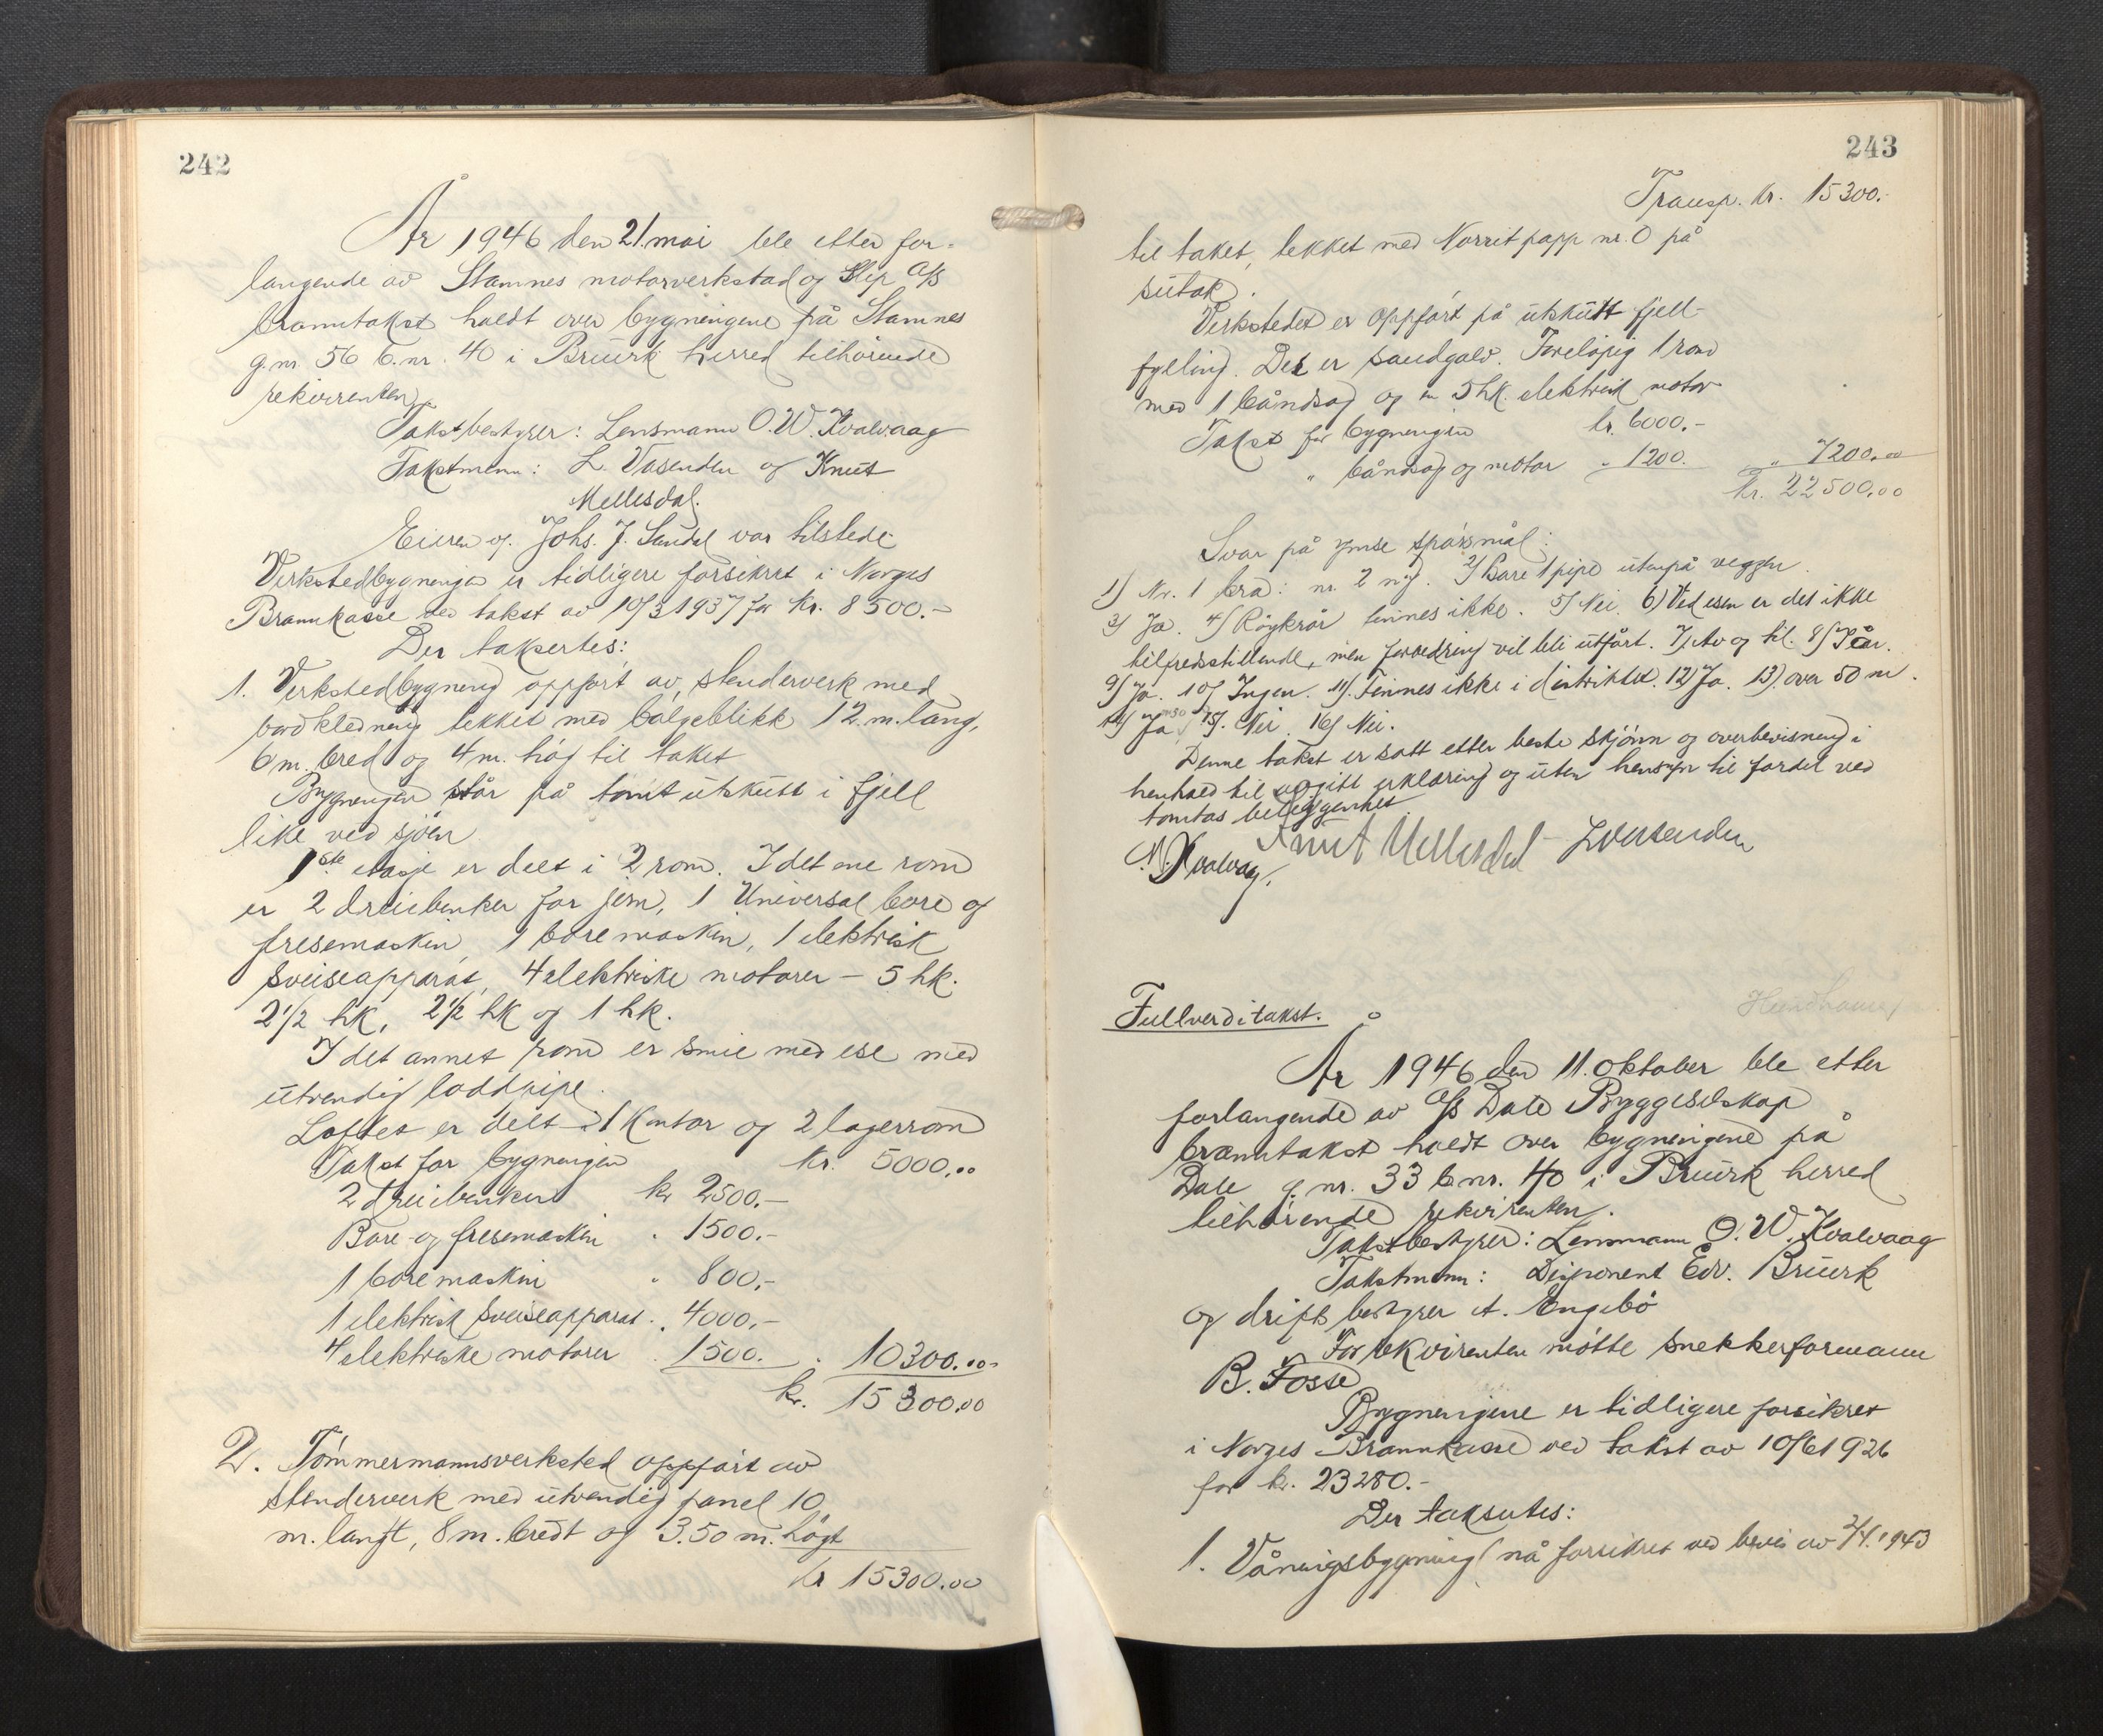 242
År 1946 den 21. mai ble etter for-
langende av Stamnes motorverksted og Slip A/S
branntakst holdt over bygningene på Stamnes
g.nr. 56 b.nr. 40 i Bruvik herred tilhørende
rekvirenten.
Takstbestyrer: Lensmann O. W. Kvalvaag
Takstmenn: L. Vasenden og Knut
Mellesdal.
Eieren v/ Johs. J. Sandal var tilstede
Verkstedbygningen er tidligere forsikret i Norges
Brannkasse ved takst av 10/3 1937 for kr. 8500.-
Der taksertes:
1. Verkstedbygning oppført av stenderverk med
bordkledning tekket med bølgeblikk 12 m. lang,
6 m. bred og 4 m. høg til taket
Bygningen står på tomt utskutt i fjell
like ved sjøen
1ste etasje er delt i 2 rom. I det ene rom
er 2 dreiebenker for jern, 1 Universal bore og
fresemaskin, 1 boremaskin, 1 elektrisk
sveiseapparat, 4 elektriske motorer – 5 hk.
2 1/2 hk, 2 1/2 hk og 1 hk.
I det annet rom er smie med ese med
utvendig loddpipe.
Loftet er delt i 1 kontor og 2 lagerrom
Takst for bygningen kr. 5000,00
2 dreiebenker kr 2500.-
Bore- og fresemaskin " 1500.-
1 boremaskin " 800,-
1 elektrisk sveiseapparat " 4000,-
4 elektriske motorer " 1500. " 10300.00
kr. 15300,00
2. Tømmermannsverksted oppført av
stenderverk med utvendig panel 10
m. langt, 8 m. bredt og 3.50 m. høgt
kr 15300.00
243
Transp. kr. 15300.-
til taket, tekket med Norrit papp nr. 0 på
sutak.
Verkstedet er oppført på utskutt fjell-
fylling. Det er sandgolv. Foreløpig 1 rom
med 1 båndsag og en 5 hk. elektrisk motor
Takst for bygningen kr. 6000.-
" båndsag og motor " 1200. " 7200,00
Kr. 22500,00
Svar på ymse spørsmål:
1) Nr. 1 bra: nr. 2 ny. 2) Bare 1 pipe utenpå veggen.
3) Ja. 4) Røykrør finnes ikke. 5) Nei. 6) Ved esen er det ikke
tilfredsstillende, men forbedring vil bli utført. 7) Av og til. 8) Ja.
9) Ja. 10) Ingen. 11) Finnes ikke i distriktet. 12) Ja. 13) over 50 m.
14) Ja 15) Nei 16) Nei.
Denne takst er satt etter beste skjønn og overbevisning i
henhold til avgitt erklæring og uten hensyn til fordel ved
tomtas beliggenhet
Kvalvaag. Knut Mellesdal L Vasenden
Fullverditakst.
År 1946 den 11. oktober ble etter
forlangende av A/S Dale Byggeselskap
branntakst holdt over bygningene på
Dale g.nr. 33 b.nr. 40 i Bruvik herred
tilhørende rekvirenten.
Takstbestyrer: Lensmann O. W. Kvalvaag
Takstmenn: Disponent Edv. Bruvik
og driftsbestyrer A. Engebø
For rekvirenten møtte snekkerformann
B. Fosse
Bygningene er tidligere forsikret
i Norges Brannkasse ved takst av 10/6 1926
for kr. 23280.-
Der taksertes:
1. Våningsbygning (nå forsikret ved bevis av 2/4. 1943